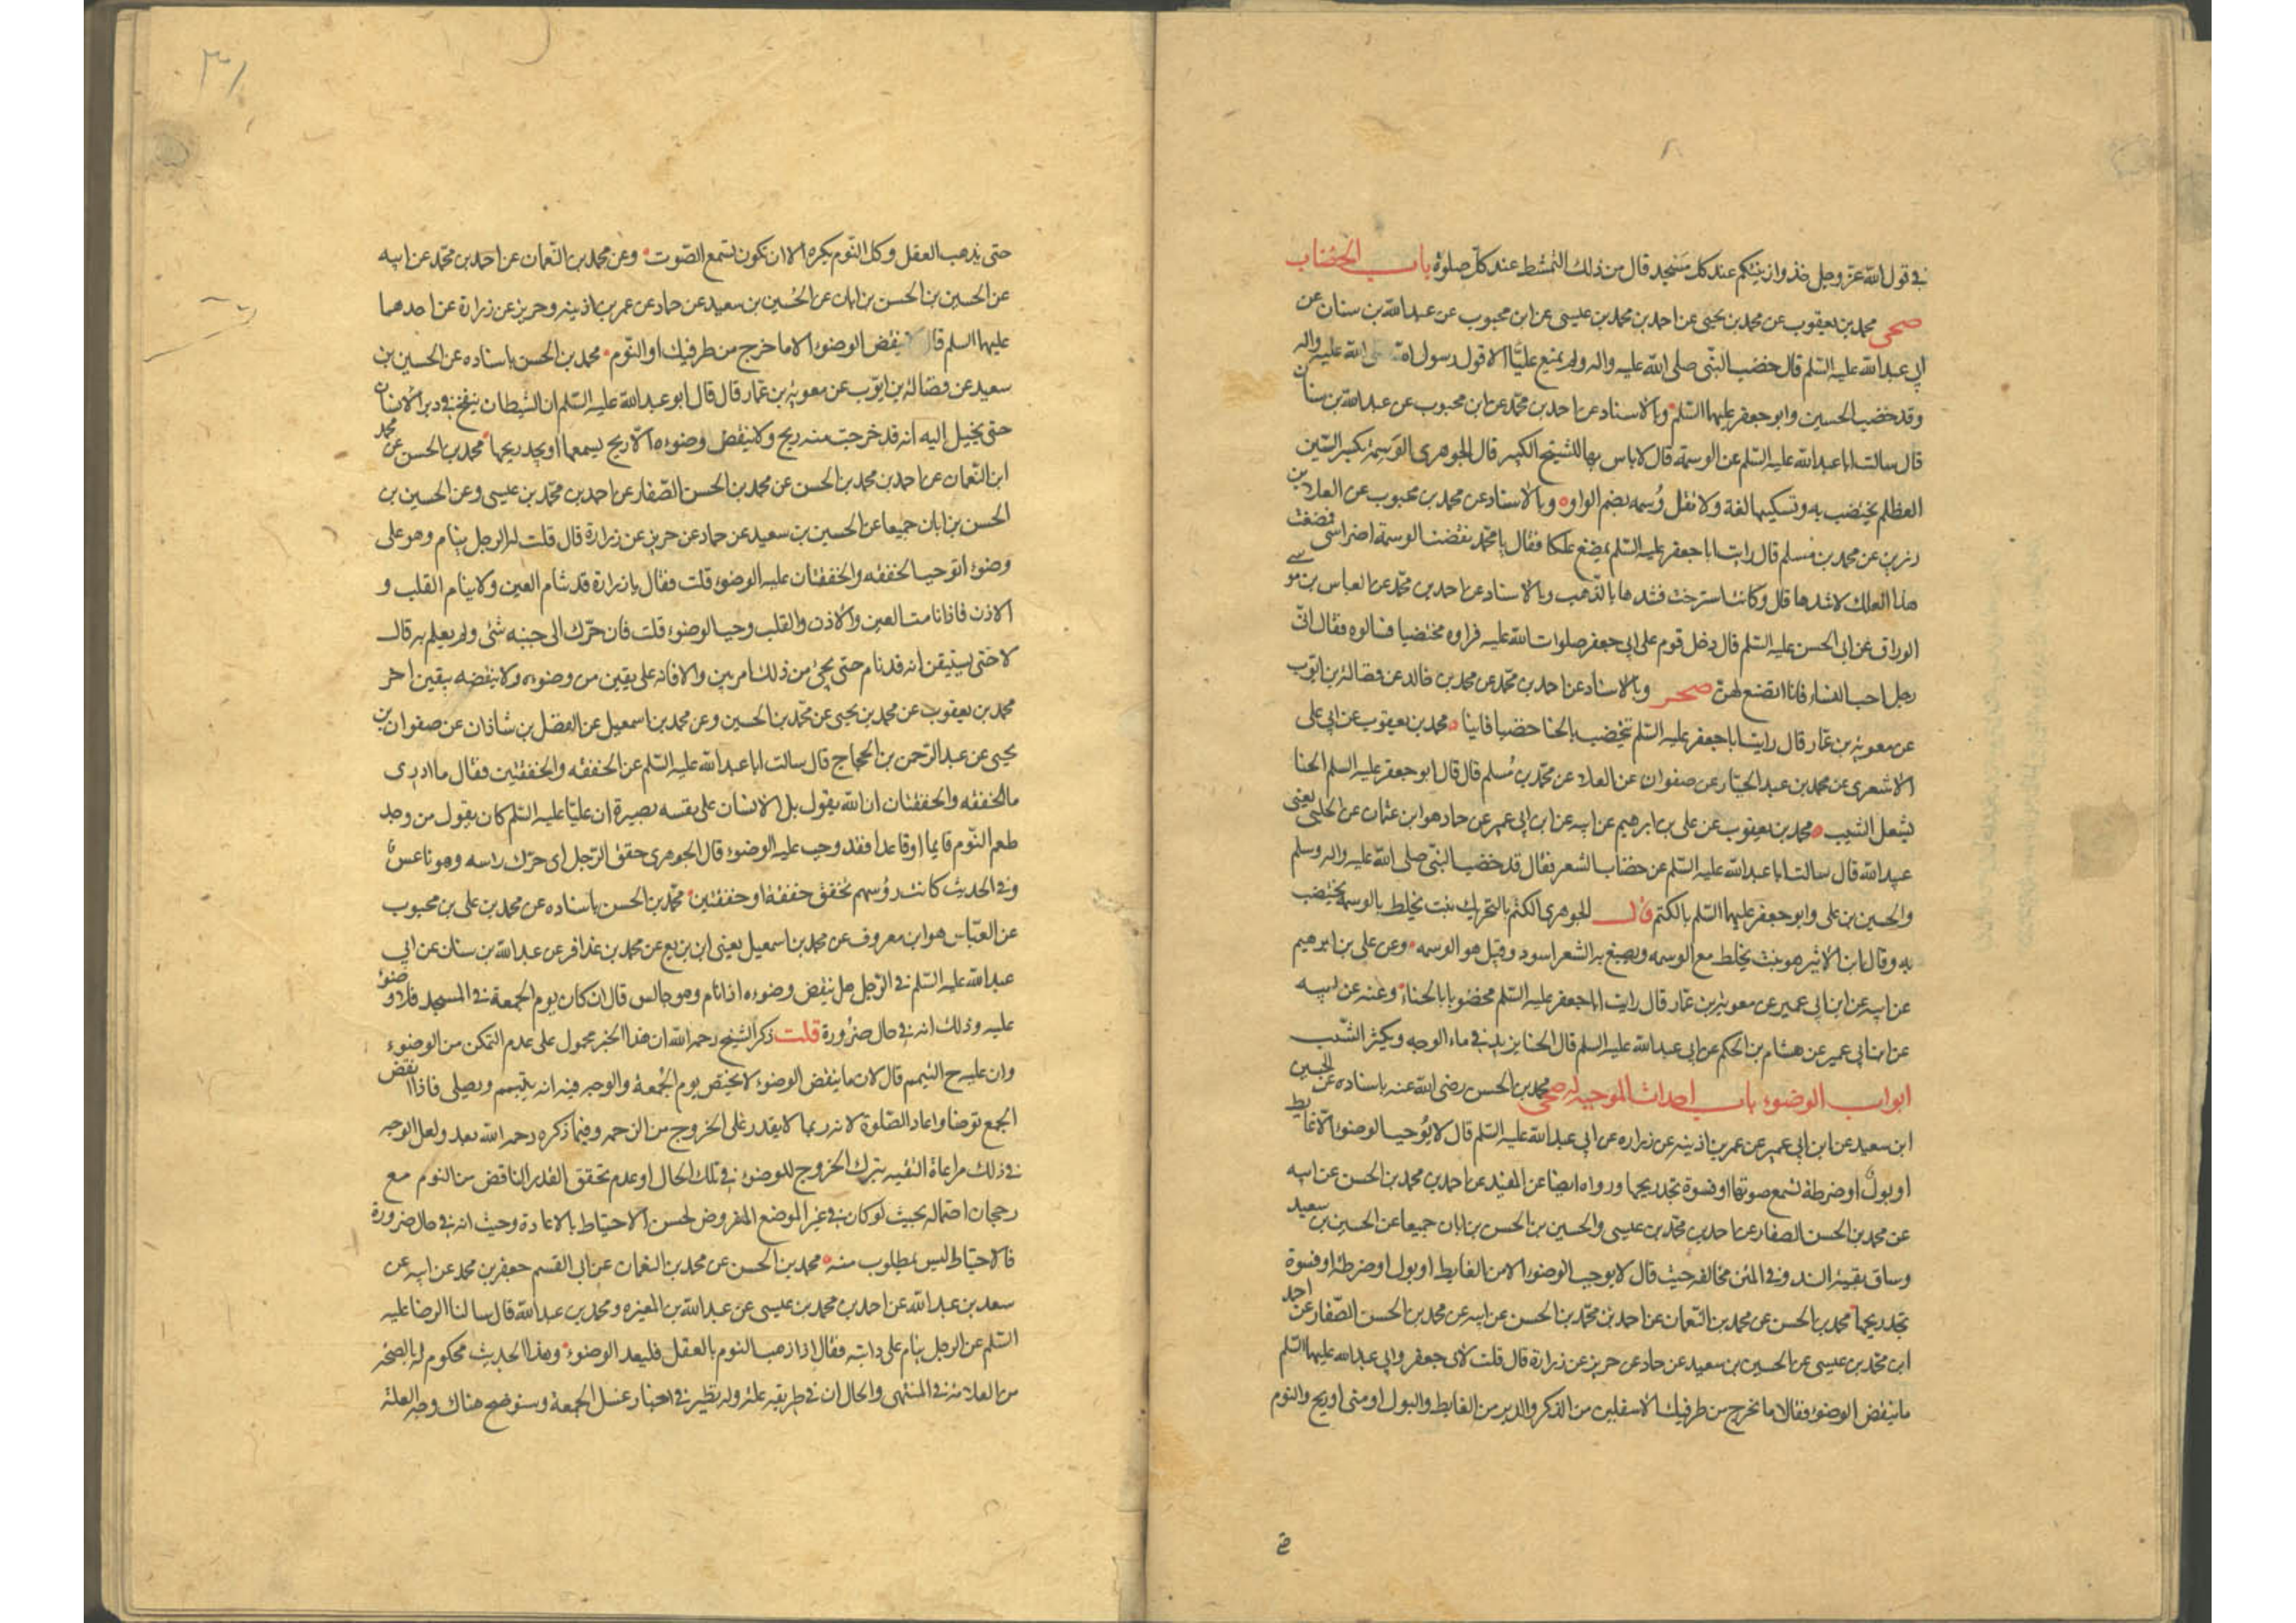 في قول الله عز وجل خذوا زينتكم عند كل مسجد قال من ذلك التمشط عند كل صلوة باب الخضاب
صحى محمد بن يعقوب عن محمد بن يحيى عن احمد بن محمد بن عيسى عن ابن محبوب عن عبد الله بن سنان عن
ابي عبد الله عليه السلم قال خضب النبي صلى الله عليه واله ولم يمنع عليا الا قول رسول الله صلى الله عليه واله
وقد خضب الحسين وابو جعفر عليهما السلم وبالاسناد عن احمد بن محمد عن ابن محبوب عن عبد الله بن سنان
قال سالت ابا عبد الله عليه السلم عن الوسمة قال لا باس بها للشيخ الكبير قال الجوهري الوسمة بكسر السين
العظلم يختضب به وتسكينها لغة ولا تقل وُسمه بضم الواو وبالاسناد عن محمد بن محبوب عن العلا بن
رزين عن محمد بن مسلم قال رايت ابا جعفر عليه السلم يمضغ علكا فقال يا محمد نقضت الوسمة اضراسي فمضغت
هذا العلك لاشدها قال وكانت استرخت فشدها بالذهب وبالاسناد عن احمد بن محمد عن العباس بن موسى
الوراق عن ابي الحسن عليه السلم قال دخل قوم على ابي جعفر صلوات الله عليه فراوه مختضبا فسالوه فقال اني
رجل احب النساء فانا اتصنع لهن صحر وبالاسناد عن احمد بن محمد عن محمد بن خالد عن فضالة بن ايوب
عن معوية بن عمار قال رايت ابا جعفر عليه السلم يختضب بالحنا خضابا قانيا محمد بن يعقوب عن ابي علي
الاشعري عن محمد بن عبد الجبار عن صفوان عن العلا عن محمد بن مسلم قال قال ابو جعفر عليه السلم الحنا
يشعل الشيب محمد بن يعقوب عن علي بن ابرهيم عن ابيه عن ابن ابي عمير عن حماد هو ابن عثمان عن الحلبي يعني
عبيد الله قال سالت ابا عبد الله عليه السلم عن خضاب الشعر فقال قد خضب النبي صلى الله عليه واله وسلم
والحسين بن علي وابو جعفر عليهما السلم بالكتم قال الجوهري الكتم بالتحريك نبت يخلط بالوسمة يختضب
به وقال ابن الاثير هو نبت يخلط مع الوسمه ويصبغ به الشعر اسود وقيل هو الوسمه وعن علي بن ابرهيم
عن ابيه عن ابن ابي عمير عن معوية بن عمار قال رايت ابا جعفر عليه السلم مخضوبا بالحناء وعنه عن ابيه
عن ابن ابي عمير عن هشام بن الحكم عن ابي عبد الله عليه السلم قال الحنا يزيد في ماء الوجه ويكثر الشيب
ابواب الوضوء باب احداث الموجبة له صحى محمد بن الحسن رضى الله عنه باسناده عن الحسين
ابن سعيد عن ابن ابي عمير عن عمر بن اذينه عن زراره عن ابي عبد الله عليه السلم قال لا يوجب الوضوء الا غايط
او بول او ضرطة تسمع صوتها او فسوة تجد ريحها ورواه ايضا عن المفيد عن احمد بن محمد بن الحسن عن ابيه
عن محمد بن الحسن الصفار عن احمد بن محمد بن عيسى والحسين بن الحسن بن ابان جميعا عن الحسين بن سعيد
وساق بقية السند وفي المتن مخالفه حيث قال لا يوجب الوضوء الا من الغايط او بول او ضرطة او فسوة
تجد ريحها محمد بن الحسن عن محمد بن النعمان عن احمد بن محمد بن الحسن عن ابيه عن محمد بن الحسن الصفار عن احمد
ابن محمد بن عيسى عن الحسين بن سعيد عن حماد عن حريز عن زرارة قال قلت لابي جعفر وابي عبد الله عليهما السلم
ما ينقض الوضوء فقالا ما يخرج من طرفيك الاسفلين من الذكر والدبر من الغايط والبول او مني او ريح والنوم
في
٣١
حتى يذهب العقل وكل النوم يكره الا ان تكون تسمع الصوت وعن محمد بن النعمان عن احمد بن محمد عن ابيه
عن الحسين بن الحسن بن ابان عن الحسين بن سعيد عن حماد عن عمر بن اذينه وحريز عن زرارة عن احدهما
عليهما السلم قال لا ينقض الوضوء الا ما خرج من طرفيك او النوم محمد بن الحسن باسناده عن الحسين بن
سعيد عن فضالة بن ايوب عن معوية بن عمار قال قال ابو عبد الله عليه السلم ان الشيطان ينفخ في دبر الانسان
حتى يخيل اليه انه قد خرجت منه ريح ولا ينقض وضوءه الا ريح يسمعها او يجد ريحها محمد بن الحسن عن محمد
ابن النعمان عن احمد بن محمد بن الحسن عن محمد بن الحسن الصفار عن احمد بن محمد بن عيسى وعن الحسين بن
الحسن بن ابان جميعا عن الحسين بن سعيد عن حماد عن حريز عن زرارة قال قلت له الرجل ينام وهو على
وضوء اتوجب الخفقه والخفقتان عليه الوضوء قلت فقال يا زرارة قد تنام العين ولا ينام القلب و
الاذن فاذا نامت العين والاذن والقلب وجب الوضوء قلت فان حرك الى جنبه شئ ولم يعلم به قال
لا حتى يستيقن انه قد نام حتى يجئ من ذلك امر بين والا فانه على يقين من وضوءه ولا ينقضه بيقين اخر
محمد بن يعقوب عن محمد بن يحيى عن محمد بن الحسين وعن محمد بن اسمعيل عن الفضل بن شاذان عن صفوان بن
يحيى عن عبد الرحمن بن الحجاج قال سالت ابا عبد الله عليه السلم عن الخفقه والخفقتين فقال ما ادري
ما الخفقه والخفقتان ان الله يقول بل الانسان على نفسه بصيرة ان عليا عليه السلم كان يقول من وجد
طعم النوم قايما او قاعدا فقد وجب عليه الوضوء قال الجوهري خفق الرجل اي حرك راسه وهو ناعس
وفي الحديث كانت رؤسهم تخفق خفقة او خفقتين محمد بن الحسن باسناده عن محمد بن علي بن محبوب
عن العباس هو ابن معروف عن محمد بن اسمعيل يعني ابن بزيع عن محمد بن عذافر عن عبد الله بن سنان عن ابي
عبد الله عليه السلم في الرجل هل ينقض وضوءه اذا نام وهو جالس قال ان كان يوم الجمعة في المسجد فلا وضوء
عليه وذلك انه في حال ضرورة قلت ذكر الشيخ رحمه الله ان هذا الخبر محمول على عدم التمكن من الوضوء
وان عليه ح التيمم قال لان ما ينقض الوضوء لا يختص يوم الجمعة والوجه فيه انه يتيمم ويصلي فاذا انفض
الجمع توضا واعاد الصلوة لانه ربما لا يقدر على الخروج من الزحمه وفيما ذكره رحمه الله بعد ولعل الوجه
في ذلك مراعاة التقيه بترك الخروج للوضوء في تلك الحال او عدم تحقق القدر الناقض من النوم مع
رجحان احتماله بحيث لو كان في غير الموضع المفروض لحسن الاحتياط بالاعادة وحيث انه في حال ضرورة
فالاحتياط ليس بمطلوب منه محمد بن الحسن عن محمد بن النعمان عن ابي القسم جعفر بن محمد عن ابيه عن
سعد بن عبد الله عن احمد بن محمد بن عيسى عن عبد الله بن المغيره ومحمد بن عبد الله قال سالنا الرضا عليه
السلم عن الرجل ينام على دابته فقال اذا ذهب النوم بالعقل فليعد الوضوء وهذا الحديث محكوم له بالصحة
من العلامة في المنتهى والحال ان في طريقه علة وله نظير في اخبار غسل الجمعة وسنوضح هناك وجه العلة